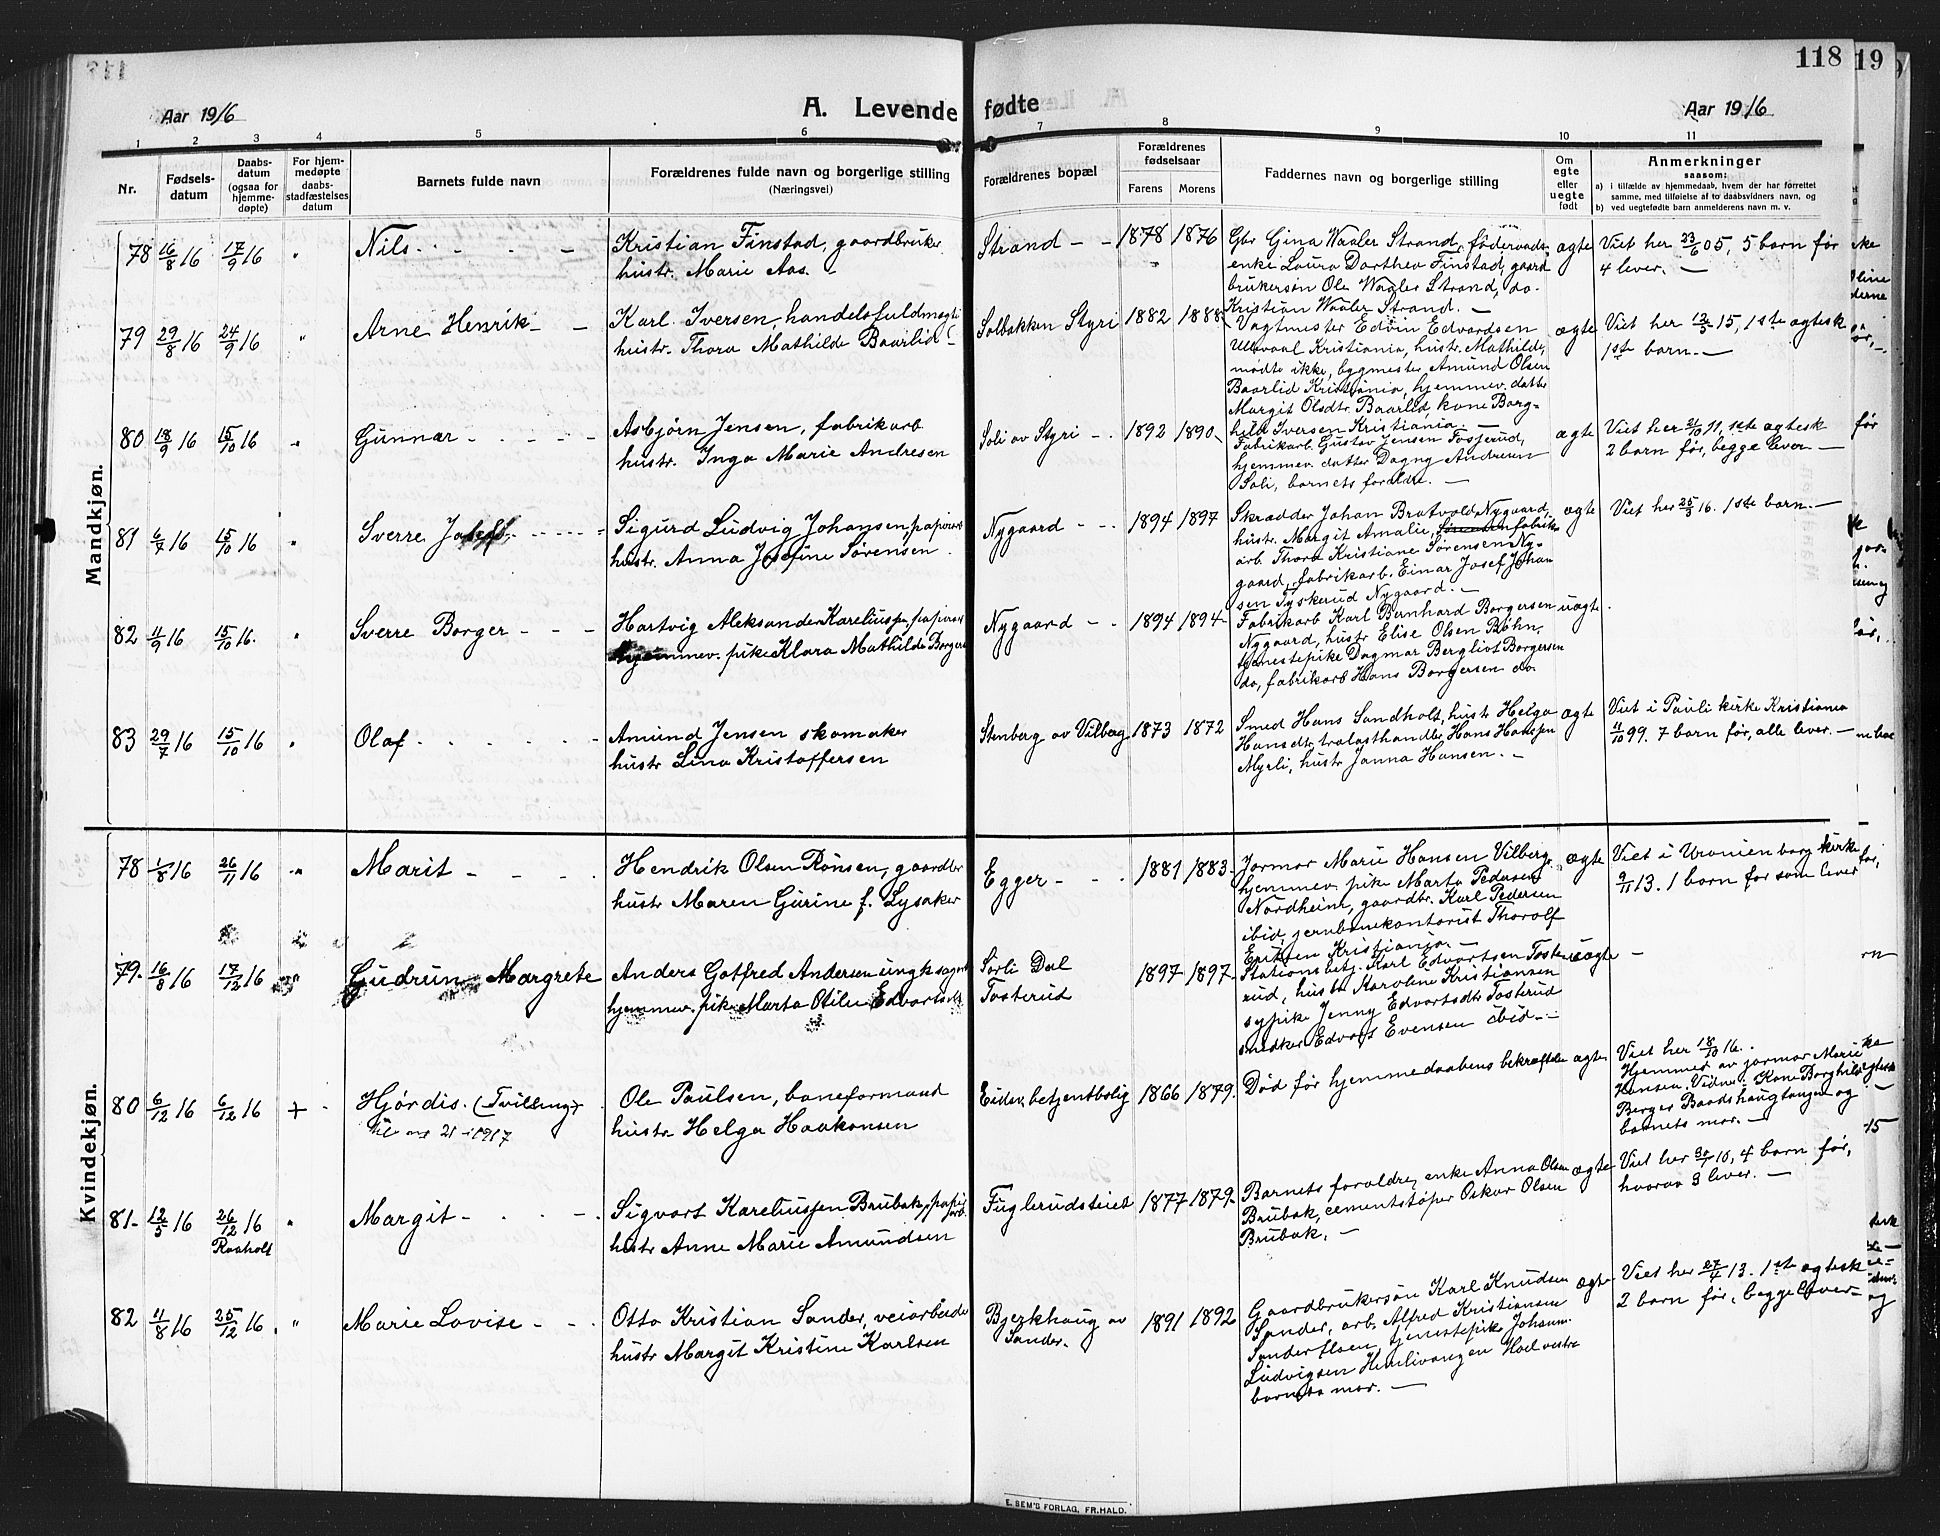 118
19
Aar 1916
A. Levende fødte
Aar 1916
1 2 3 4 5 6 7 8 9 10 11
Nr.
Fødsels-
datum
Daabs-
datum
(ogsaa for
hjemme-
døpte)
For hjem-
medøpte
daabs-
stadfæstelses
datum
Barnets fulde navn
Forældrenes fulde navn og borgerlige stilling
(Næringsvei)
Forældrenes bopæl
Forældrenes
fødselsaar
Farens Morens
Faddernes navn og borgerlige stilling
Om
egte
eller
uegte
født
Anmerkninger
saasom:
a) i tilfælde av hjemmedaab, hvem der har forrettet
samme, med tilføielse af to daabsvidners navn, og
b) ved uegtefødte barn anmelderens navn m. v.
Mandkjøn.
78 16/8 16 17/9 16 " Nils
Kristian Finstad, gaardbruker
hustr. Marie Aas.
Strand 1878 1876
Gbr Gina Waaler Strand, føderaads-
enke Laura Dorthea Finstad, gaard
brukersøn Ole Waaler Strand, do.
Kristian Waaler Strand.
ægte
Viet her 23/6 05, 5 barn før
4 lever.
79 29/8 16 24/9 16 " Arne Henrik
Karl Iversen, handelsfuldmægti
hustr. Thora Mathilde Baarlid
Solbakken Styri 1882 1888
Vagtmester Edvin Edvardsen
Ullevaal Kristiania, hustr. Mathilde,
møtte ikke, bygmester Amund Olsen
Baarlid Kristiania, hjemmev. datter
Margit Olsdtr. Baarlid, kone Borg=
hild Iversen Kristiania
ægte
Viet her 12/3 15, 1ste ægtesk
1ste barn.
80 18/9 16 15/10 16 " Gunnar
Asbjørn Jensen, fabrikarb
hustr. Inga Marie Andresen
Soli av Styri 1892 1890
Fabrikarb. Gustav Jensen Fosserud,
hjemmev. datter Dagny Andresen
Soli, barnets forældre.
ægte
Viet her 21/10 11, 1ste ægtesk
2 barn før, begge lever
81 6/7 16 15/10 16 " Sverre
Sigurd Ludvig Johansen, papirarb
hustr. Anna Josefine Sørensen
Nygaard 1894 1897
Skrædder Johan Bratvold Nygaard,
hustr. Margit Amalie, fabrik
arb. Thora Kristiane Sørensen Ny=
gaard, fabrikarb. Einar Josef Johan
sen Tyskerud Nygaard.
ægte
Viet her 25/3 16. 1ste barn.
82 11/9 16 15/10 16. " Sverre Borger
Hartvig Aleksander Kareliussen, papirarb
hjemmev. pike Klara Mathilde Borgers
Nygaard 1894 1894
Fabrikarb Karl Bernhard Borgersen
Nygaard, hustr Elise Olsen Bøhn,
tjenestepike Dagmar Bergliot Borgersen
do, fabrikarb Hans Borgersen do
uægte
83 29/7 16 15/10 16 " Olaf
Amund Jensen skomaker
hustr Lina Kristoffersen
Stenberg av Vilberg 1873 1872
Smed Hans Sandholt, hustr Helga
Hansdtr, trælasthandler Hans Hansen
Myrli, hustr Janna Hansen.
ægte
Viet i Pauli kirke Kristiania
11/10 99. 7 barn før, alle lever.
Kvindekjøn.
78 1/8 16 26/11 16 " Marit
Hendrik Olsen Rønsen, gaardbr
hustr Maren Gurine f. Lysaker
Egger 1881 1883
Jormor Marie Hansen Vilberg,
hjemmev. pike Marta Pedersen
Nordheim, gaardbr. Karl Pedersen
ibid, jernbanekontorist Thorolf
Eriksen Kristiania.
ægte
Viet i Uranienborg kirke
9/11 13. 1 barn før som lever
79 16/8 16 17/12 16 " Gudrun Margrete
Anders Gotfred Andersen ungk
hjemmev. pike Marta Otilie Edvartsdt
Sørli Dal
Tosterud
1897 1897
Stationsbetj. Karl Edvartsen Toste
rud, hustr Karoline Kristiansen
sypike Jenny Edvartsdtr Tosterud
snedker Edvart Evensen ibid
uægte
80 6/12 16 6/12 16 + Hjørdis. (Tvilling)
Ole Paulsen, baneformand
hustr Helga Haakonsen
Eidsv. betjentbolig 1866 1879
Død før hjemmedaabens bekræftelse
ægte
Viet her 18/10 16.
Hjemmed av jormor Marie
Hansen. Vidne: Kone Borghild
Berger Baadshaugtangen og
barnets mor.
81 12/5 16 26/12 16 " Margit
Raaholt
Sigvart Kareliussen Brubak, papir
arb.
hustr Anne Marie Amundsen
Fuglerudsteiet 1877 1879
Barnets forældre, enke Anna Olsen
Brubak, cementstøper Oskar Olsen
Brubak.
ægte
Viet her 30/7 10, 4 barn før,
hvorav 3 lever.
82 11/8 16 25/12 16. " Marie Lovise
Otto Kristian Sander, veiarbeider
hustr Margit Kristine Karlsen
Bjerkhaug av
Sander.
1891 1892
Gaardbrukersøn Karl Knudsen
Sander, arb. Alfred Kristiansen
tjenestepike Johanne
Ludvigsen Hoel vestre
barnets mor.
ægte
Viet her 27/4 13. 1ste ægtesk
2 barn før, begge lever
E. SEM'S FORLAG, FR.HALD.